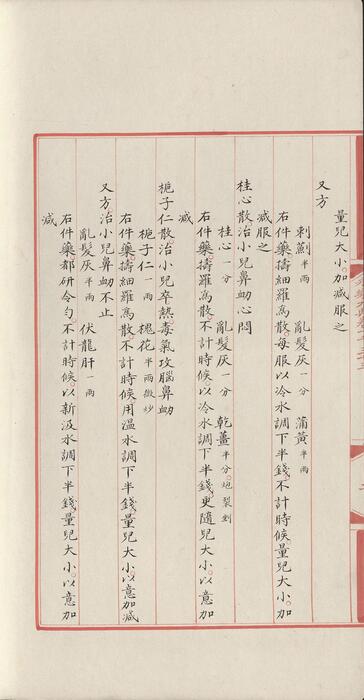 量兒大小加減服之
又方
刺薊半兩 亂髮灰一分 蒲黃半兩
右件藥擣細羅為散每服以冷水調下半錢不計時候量兒大小加
減服之
桂心散治小兒鼻衂心悶
桂心一分 亂髮灰一分 乾薑半分炮裂剉
右件藥擣羅為散不計時候以冷水調下半錢更隨兒大小以意加
減
梔子仁散治小兒卒熱毒氣攻腦鼻衂
梔子仁一兩 槐花半兩微炒
右件藥擣細羅為散不計時候用溫水調下半錢量兒大小以意加減
又方治小兒鼻衂不止
亂髮灰半兩 伏龍肝一兩
右件藥都研令勻不計時候以新汲水調下半錢量兒大小以意加
減